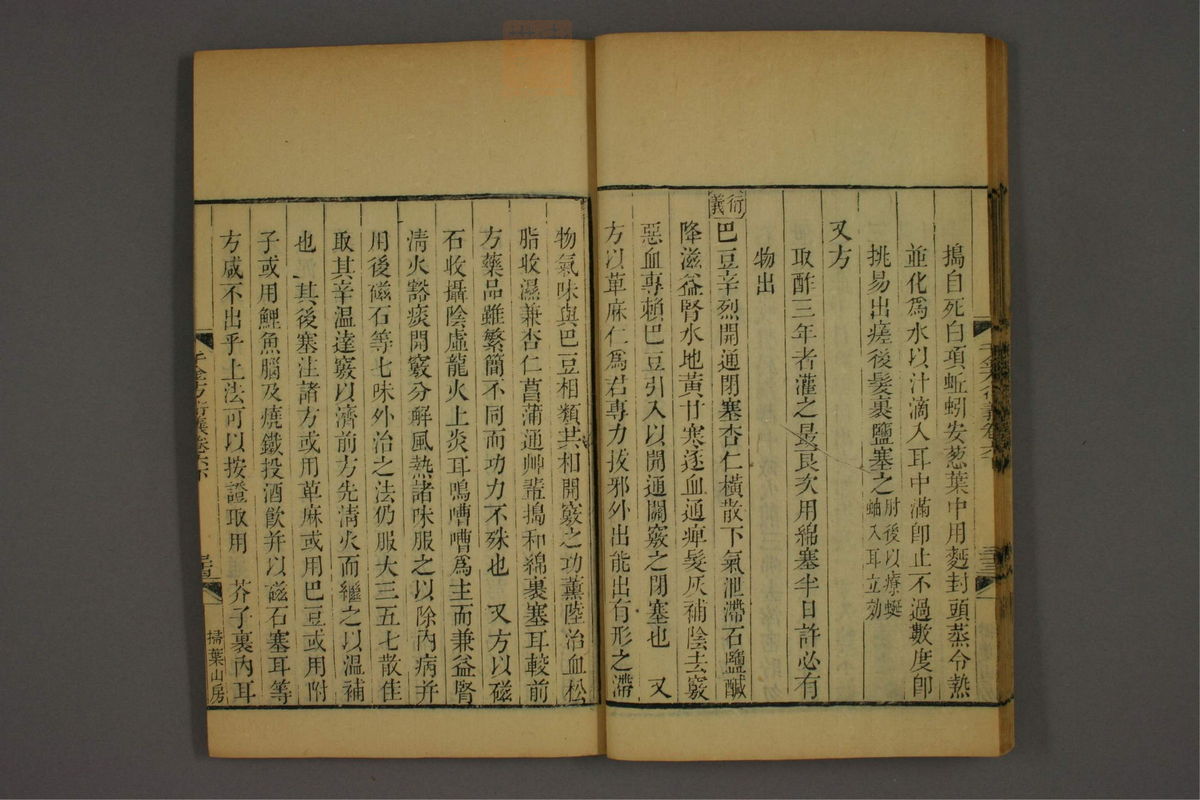 千金方衍義卷六
三三
搗自死白項蚯蚓安葱葉中用麪封頭蒸令熟
並化爲水以汁滴入耳中滿卽止不過數度卽
挑易出瘥後髮裹鹽塞之肘後以療蜒
蚰入耳立効
又方
取酢三年者灌之最良次用綿塞半日許必有
物出
衍義
巴豆辛烈開通閉塞杏仁橫散下氣泄滯石鹽鹹
降滋益腎水地黃甘寒逐血通痺髮灰補陰去竅
惡血專賴巴豆引入以開通關竅之閉塞也 又
方以萆麻仁爲君專力拔邪外出能出有形之滯
物氣味與巴豆相類其相開竅之功薰陸治血松
脂收濕兼杏仁菖蒲通艸輩搗和綿裹塞耳較前
方藥品雖繁簡不同而功力不殊也 又方以磁
石收攝陰虛龍火上炎耳鳴嘈嘈爲主而兼益腎
淸火豁痰開竅分解風熱諸味服之以除內病并
用後磁石等七味外治之法仍服大三五七散佳
取其辛溫達竅以濟前方先淸火而繼之以溫補
也 其後塞注諸方或用萆麻或用巴豆或用附
子或用鯉魚腦及燒鐵投酒飮并以磁石塞耳等
方咸不出乎上法可以按證取用 芥子裹內耳
千金方衍義卷六下
三四
掃葉山房